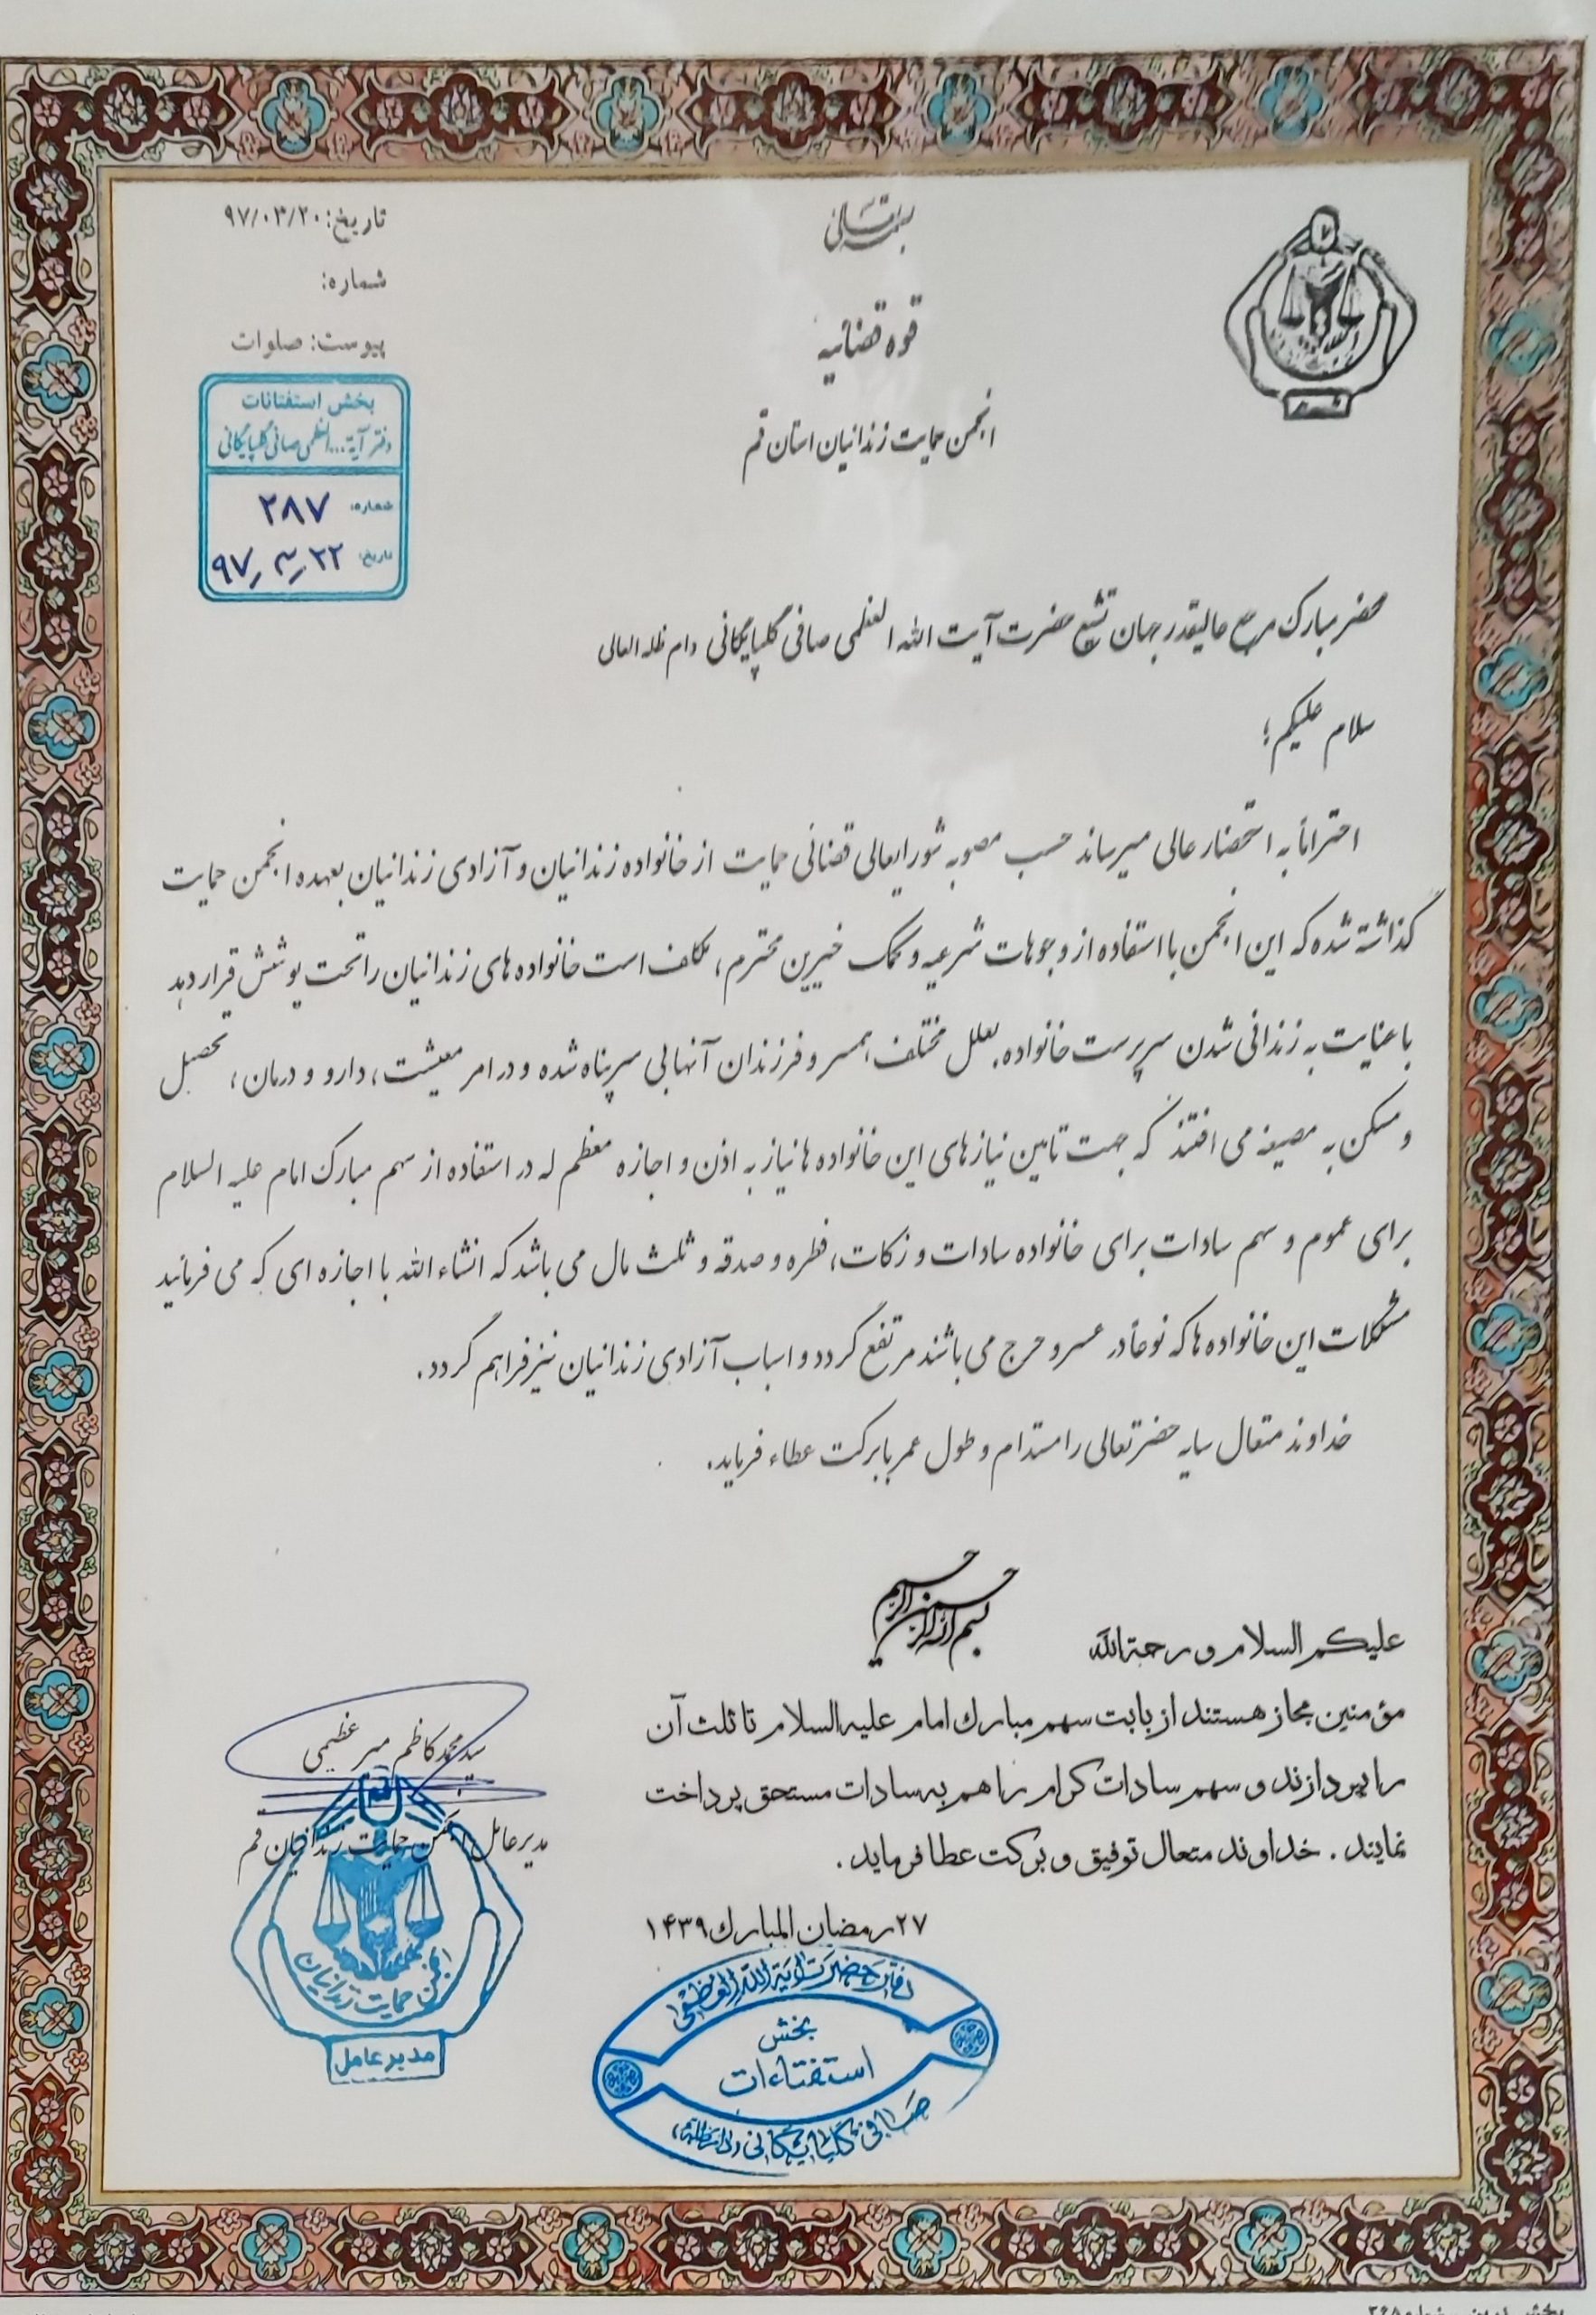 بسمه تعالی
تاریخ: ۹۷/۰۳/۲۰
شماره:
پیوست: صلوات
قوه قضائیه
انجمن حمایت زندانیان استان قم
بخش استفتائات
دفتر آیة... العظمی صافی گلپایگانی
شماره: ۲۸۷
تاریخ: ۹۷/۳/۲۲
محضر مبارک مرجع عالیقدر جهان تشیع حضرت آیت الله العظمی صافی گلپایگانی دام ظله العالی
سلام علیکم؛
احتراماً به استحضار عالی میرساند حسب مصوبه شورایعالی قضائی حمایت از خانواده زندانیان و آزادی زندانیان بعهده انجمن حمایت
گذاشته شده که این انجمن با استفاده از وجوهات شرعیه و کمک خیرین محترم، مکلف است خانواده های زندانیان را تحت پوشش قرار دهد
با عنایت به زندانی شدن سرپرست خانواده بعلل مختلف، همسر و فرزندان آنها بی سرپناه شده و در امر معیشت، دارو و درمان، تحصیل
و مسکن به مضیقه می افتند که جهت تامین نیازهای این خانواده ها نیاز به اذن و اجازه معظم له در استفاده از سهم مبارک امام علیه السلام
برای عموم و سهم سادات برای خانواده سادات و زکات، فطره و صدقه و ثلث مال می باشد که انشاء الله با اجازه ای که می فرمائید
مشکلات این خانواده ها که نوعاً در عسر و حرج می باشند مرتفع گردد و اسباب آزادی زندانیان نیز فراهم گردد.
خداوند متعال سایه حضرتعالی را مستدام و طول عمر با برکت عطاء فرماید.
بسم الله الرحمن الرحیم
علیکم السلام و رحمة الله
مؤمنین مجاز هستند از بابت سهم مبارک امام علیه السلام تا ثلث آن
را بپردازند و سهم سادات کرام را هم به سادات مستحق پرداخت
نمایند. خداوند متعال توفیق و برکت عطا فرماید.
۲۷ رمضان المبارک ۱۴۳۹
سید محمد کاظم میر عظیمی
مدیر عامل انجمن حمایت زندانیان قم
انجمن حمایت زندانیان
مدیر عامل
دفتر حضرت آیة الله العظمی
بخش
استفتاءات
صافی گلپایگانی